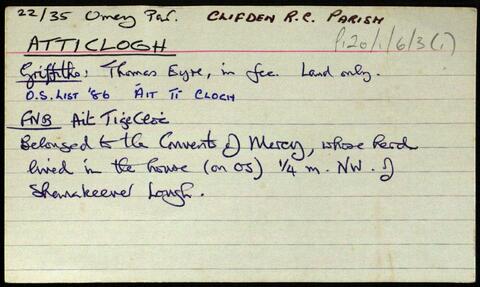 22/35 Omey Par. CLIFDEN R.C. PARISH
P120/1/6/3(1)
ATTICLOGH
Griffiths: Thomas Eyre, in fee. Land only.
O.S. LIST '86 ÁIT TÍ CLOCH
FNB Ait Tige Cloc
Belonged to the Convent of Mercy, whose herd
lived in the house (on OS) 1/4 m. NW. of
Shanakeever Lough.